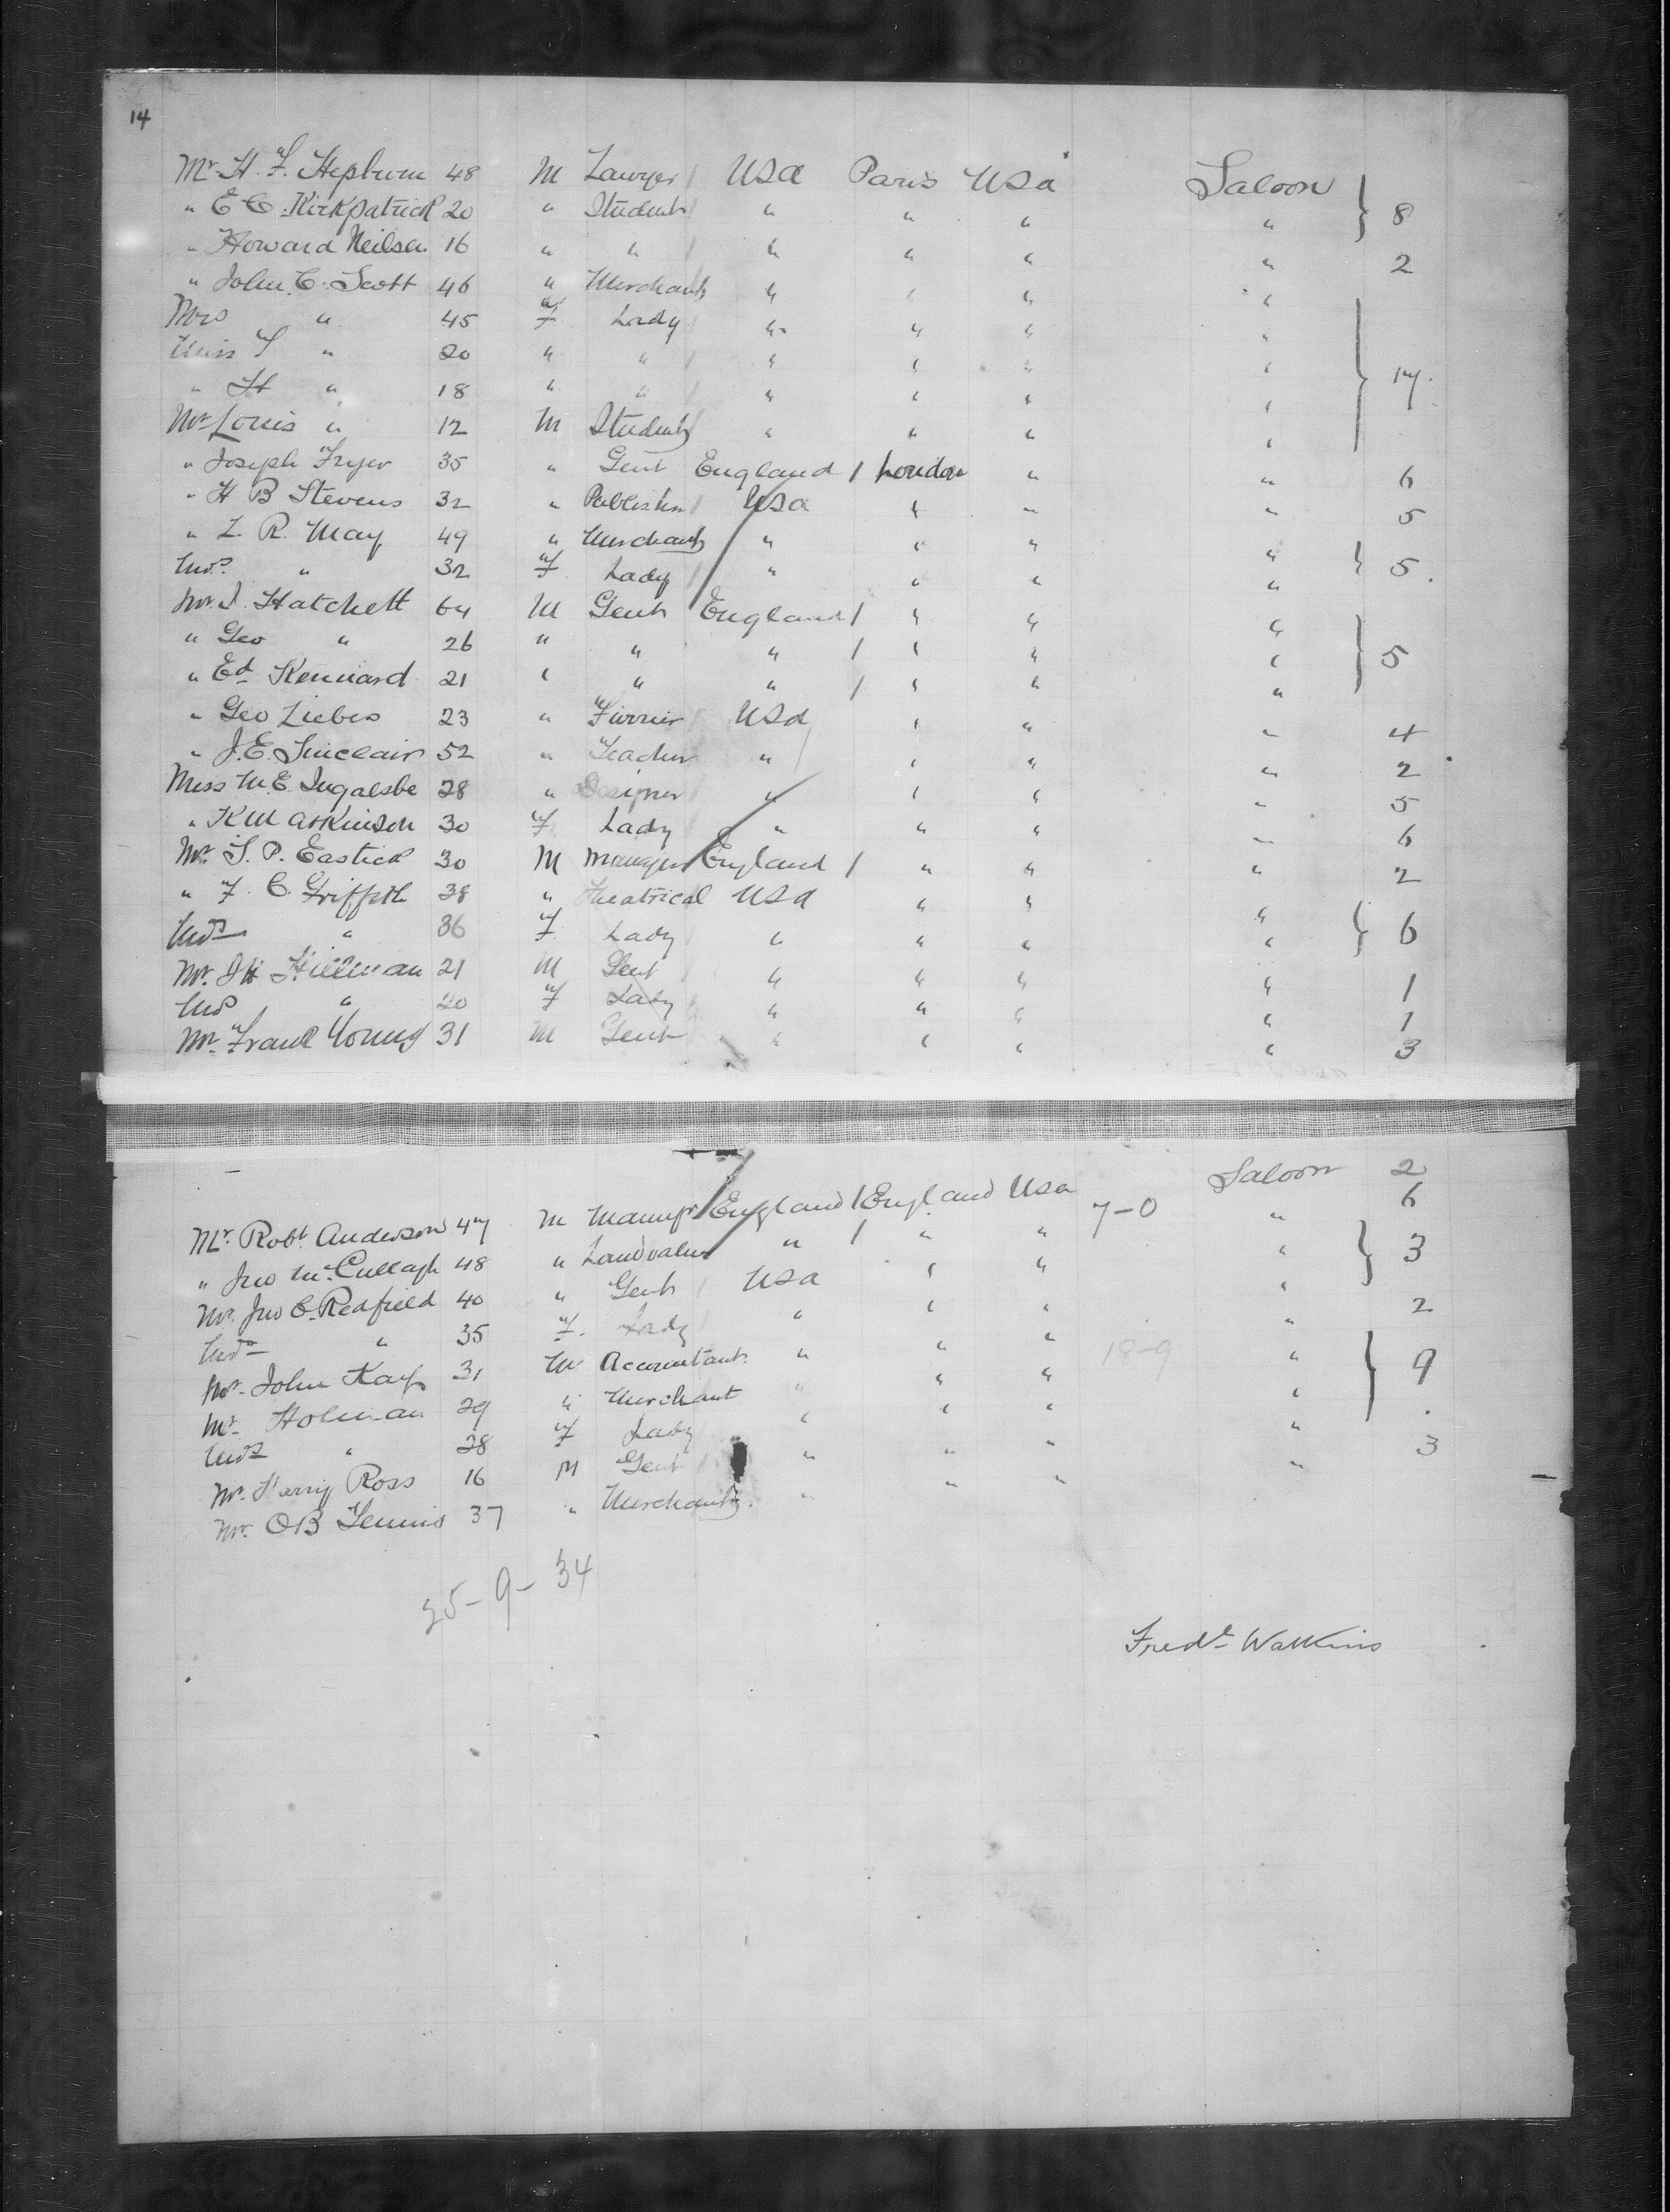 14
Mr. H. F. Hepburn 48 M Lawyer / USA Paris USA Saloon } 8
" E C. Kirkpatrick 20 " Student " " " "
" Howard Neilson 16 " " / " " " " 2
" John C. Scott 46 " Merchant " " " "
Mrs " 45 F Lady " " " "
Miss S " 20 " " " " " " } 17
" H " 18 " " " " " "
Mr Louis " 12 M Student " " " "
" Joseph Fryer 35 " Gent England / London " " 6
" H B Stevens 32 " Publisher / USA " " " 5
" L. R. May 49 " Merchant " " " " } 5.
Mrs. " 32 F Lady " " " "
Mr J. Hatchett 64 M Gent England / " " "
" Geo " 26 " " " / " " " } 5
" Ed Kenniard 21 " " " / " " "
" Geo Liebes 23 " Furrier USA " " " 4
" J. E. Sinclair 52 " Teacher " " " " 2
Miss M. E. Ingalsbe 28 " Designer " " " " 5
" K M Atkinson 30 F Lady " " " " 6
Mr. S. P. Eastick 30 M Manager England / " " " 2
" F. C. Griffith 38 " Theatrical USA " " " } 6
Mrs " 36 F Lady " " " "
Mr. J H Hillman 21 M Gent " " " " 1
Mrs " 20 F Lady " " " " 1
Mr. Frank Young 31 M Gent " " " " 3
Saloon 2
Mr. Robt. Anderson 47 M Manufr England / England USA 7-0 " 6
" Jno McCullagh 48 " Land valuer " / " " " } 3
Mr. Jno C. Redfield 40 " Gent USA " " "
Mrs " 35 F. Lady " " " " 2
Mr. John Kay 31 M Accountant " " " 18-9 "
Mr Holman 29 " Merchant " " " " } 9
Mrs " 28 F Lady " " " "
Mr. Harry Ross 16 M Gent " " " " 3
Mr. O B Tennis 37 " Merchant " " "
25-9-34
Fredk Watkins